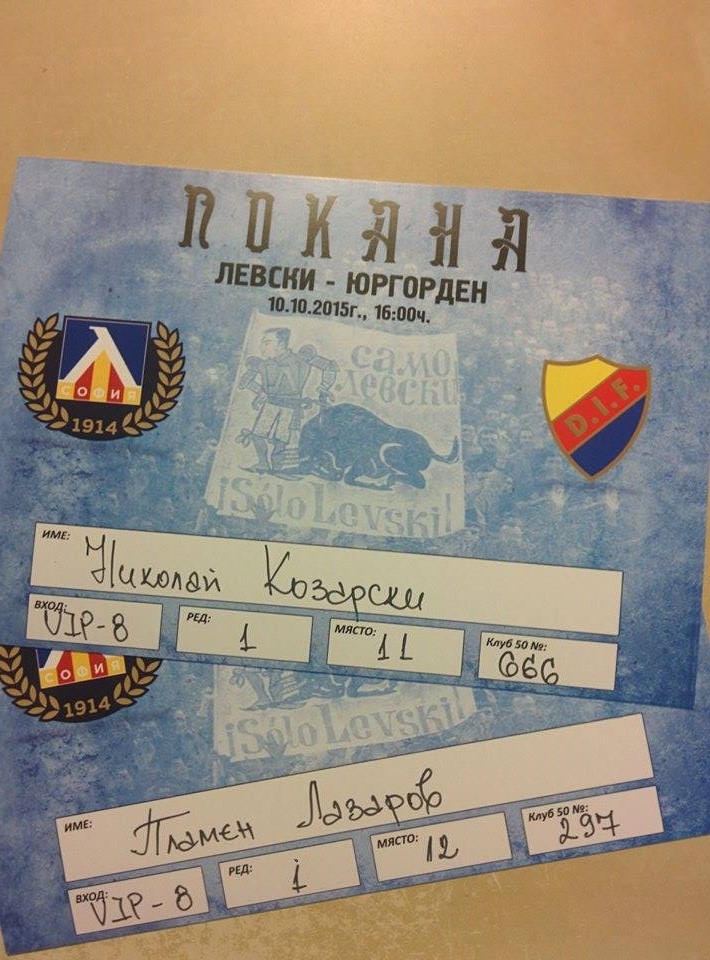 ПОКАНА
ЛЕВСКИ - ЮРГОРДЕН
10.10.2015г., 16:00ч.
само
левски
¡Sólo Levski!
СОФИЯ
1914
D.I.F.
ИМЕ: Николай Козарски
ВХОД: VIP-8 РЕД: 1 МЯСТО: 11 Клуб 50 №: 666
СОФИЯ
1914
¡Sólo Levski!
ИМЕ: Пламен Лазаров
ВХОД: VIP-8 РЕД: 1 МЯСТО: 12 Клуб 50 №: 297